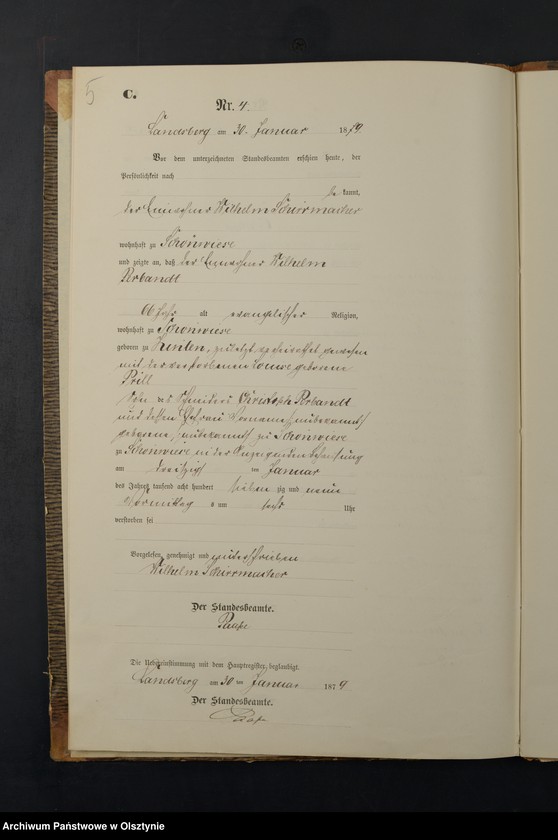 5
C.
Nr. 4.
Landsberg am 30. Januar 1879.
Vor dem unterzeichneten Standesbeamten erschien heute, der
Persönlichkeit nach
be kannt,
der Einwohner Wilhelm Schirrmacher
wohnhaft zu Schönwiese
und zeigte an, daß der Einwohner Wilhelm
Perbandt
66 Jahr alt evangelischer Religion,
wohnhaft zu Schönwiese
geboren zu Zinten, zuletzt verheirathet gewesen
mit der verstorbenen Louise geborenen
Prill
Sohn des Schneiders Christoph Perbandt
und dessen Ehefrau Vornamens unbekannt
geborene unbekannt zu Schönwiese
zu Schönwiese, in der Behausung
am dreißig ten Januar
des Jahres tausend acht hundert sieben zig und neun
Vormittag s um sechs Uhr
verstorben sei
Vorgelesen, genehmigt und unterschrieben
Wilhelm Schirrmacher
Der Standesbeamte.
Die Uebereinstimmung mit dem Hauptregister, beglaubigt.
Landsberg am 30 ten Januar 1879
Der Standesbeamte.
Archiwum Państwowe w Olsztynie